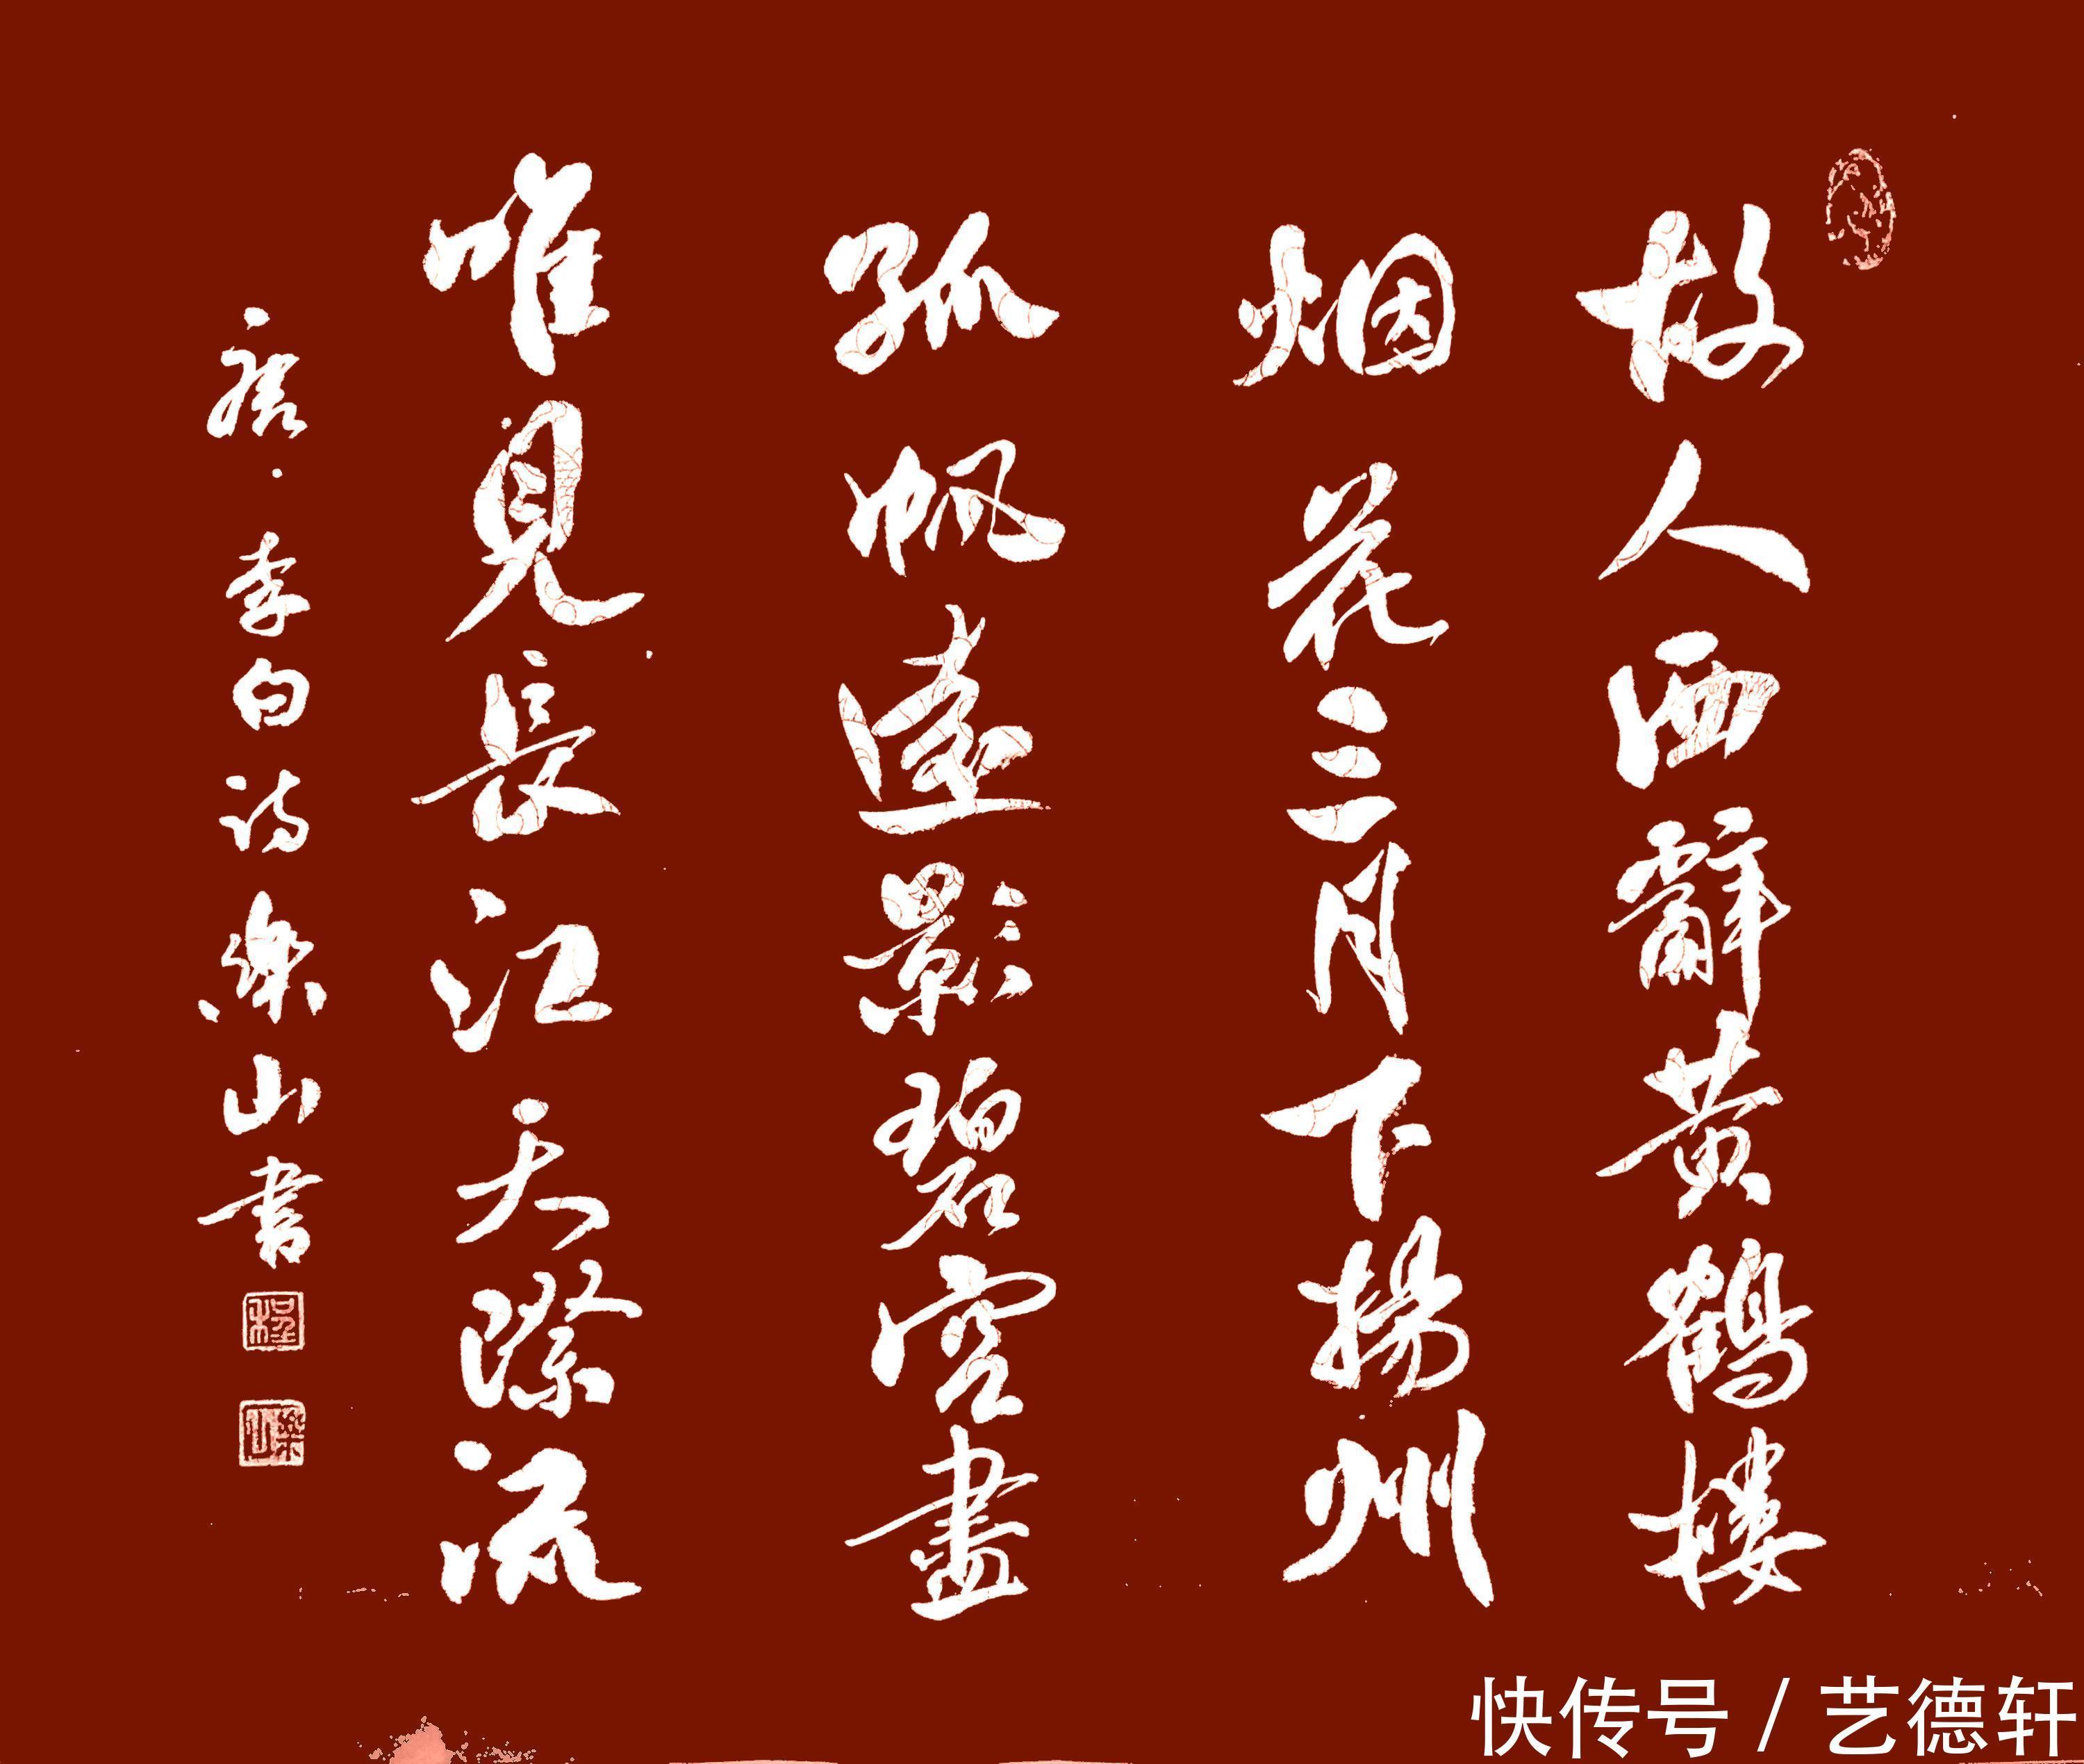 故人西辭黄鶴楼
烟花三月下揚州
孤帆遠影碧空盡
唯見長江天際流
唐·李白诗樂山書
快传号/艺德轩